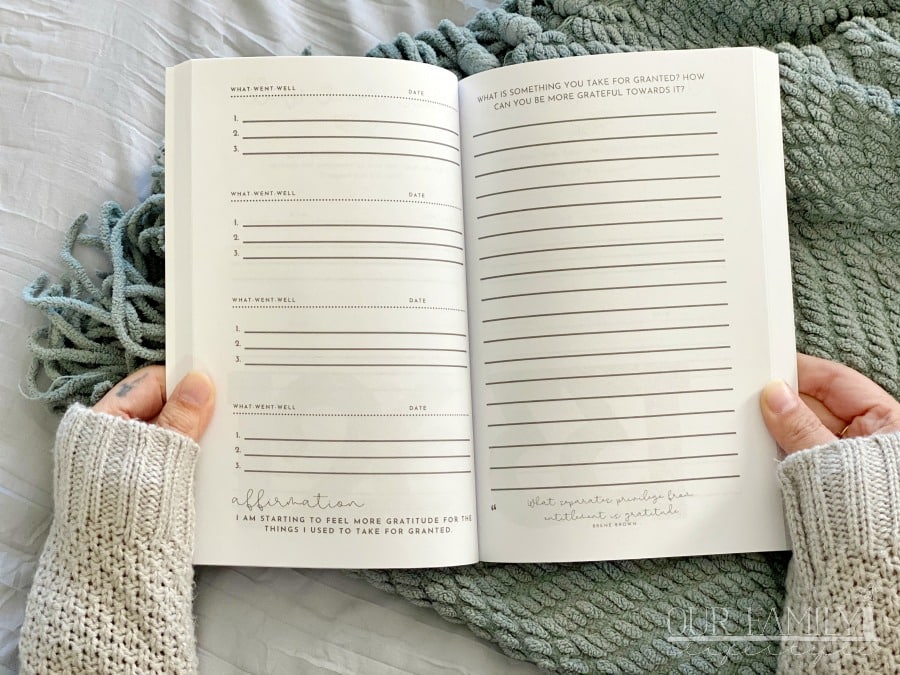 WHAT-WENT-WELL DATE
1.
2.
3.
WHAT-WENT-WELL DATE
1.
2.
3.
WHAT-WENT-WELL DATE
1.
2.
3.
WHAT-WENT-WELL DATE
1.
2.
3.
affirmation
I AM STARTING TO FEEL MORE GRATITUDE FOR THE
THINGS I USED TO TAKE FOR GRANTED.
WHAT IS SOMETHING YOU TAKE FOR GRANTED? HOW
CAN YOU BE MORE GRATEFUL TOWARDS IT?
“ What separates privilege from
entitlement is gratitude.
BRENÉ BROWN
OUR FAMILY
lifestyle